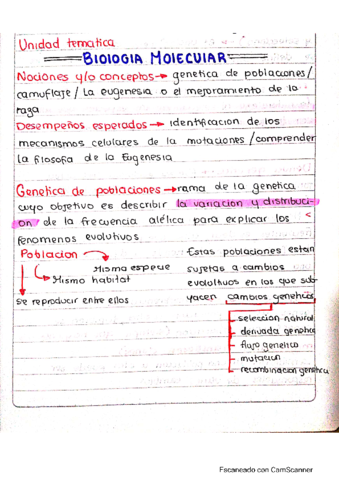 Unidad tematica
BIOLOGIA MOLECULAR
Nociones y/o conceptos → genetica de poblaciones/
camuflaje / La eugenesia o el mejoramiento de la
raza
Desempeños esperados → identificación de los
mecanismos celulares de la mutaciones / comprender
la filosofia de la Eugenesia
Genetica de poblaciones → rama de la genetica
cuyo objetivo es describir la variacion y distribuci-
on de la frecuencia alélica para explicar los
fenomenos evolutivos
Poblacion
Misma especie
Mismo habitat
se reproducir entre ellos
Estas poblaciones estan
sujetas a cambios
evolultivos en los que sub-
yacen cambios geneticos
seleccion natural
derivada genetica
flujo genetico
mutacion
recombinacion genetica
Escaneado con CamScanner